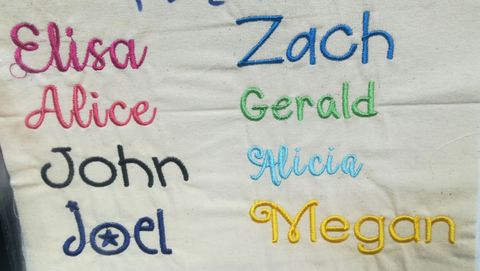 Elisa
Alice
John
Joel
Zach
Gerald
Alicia
Megan